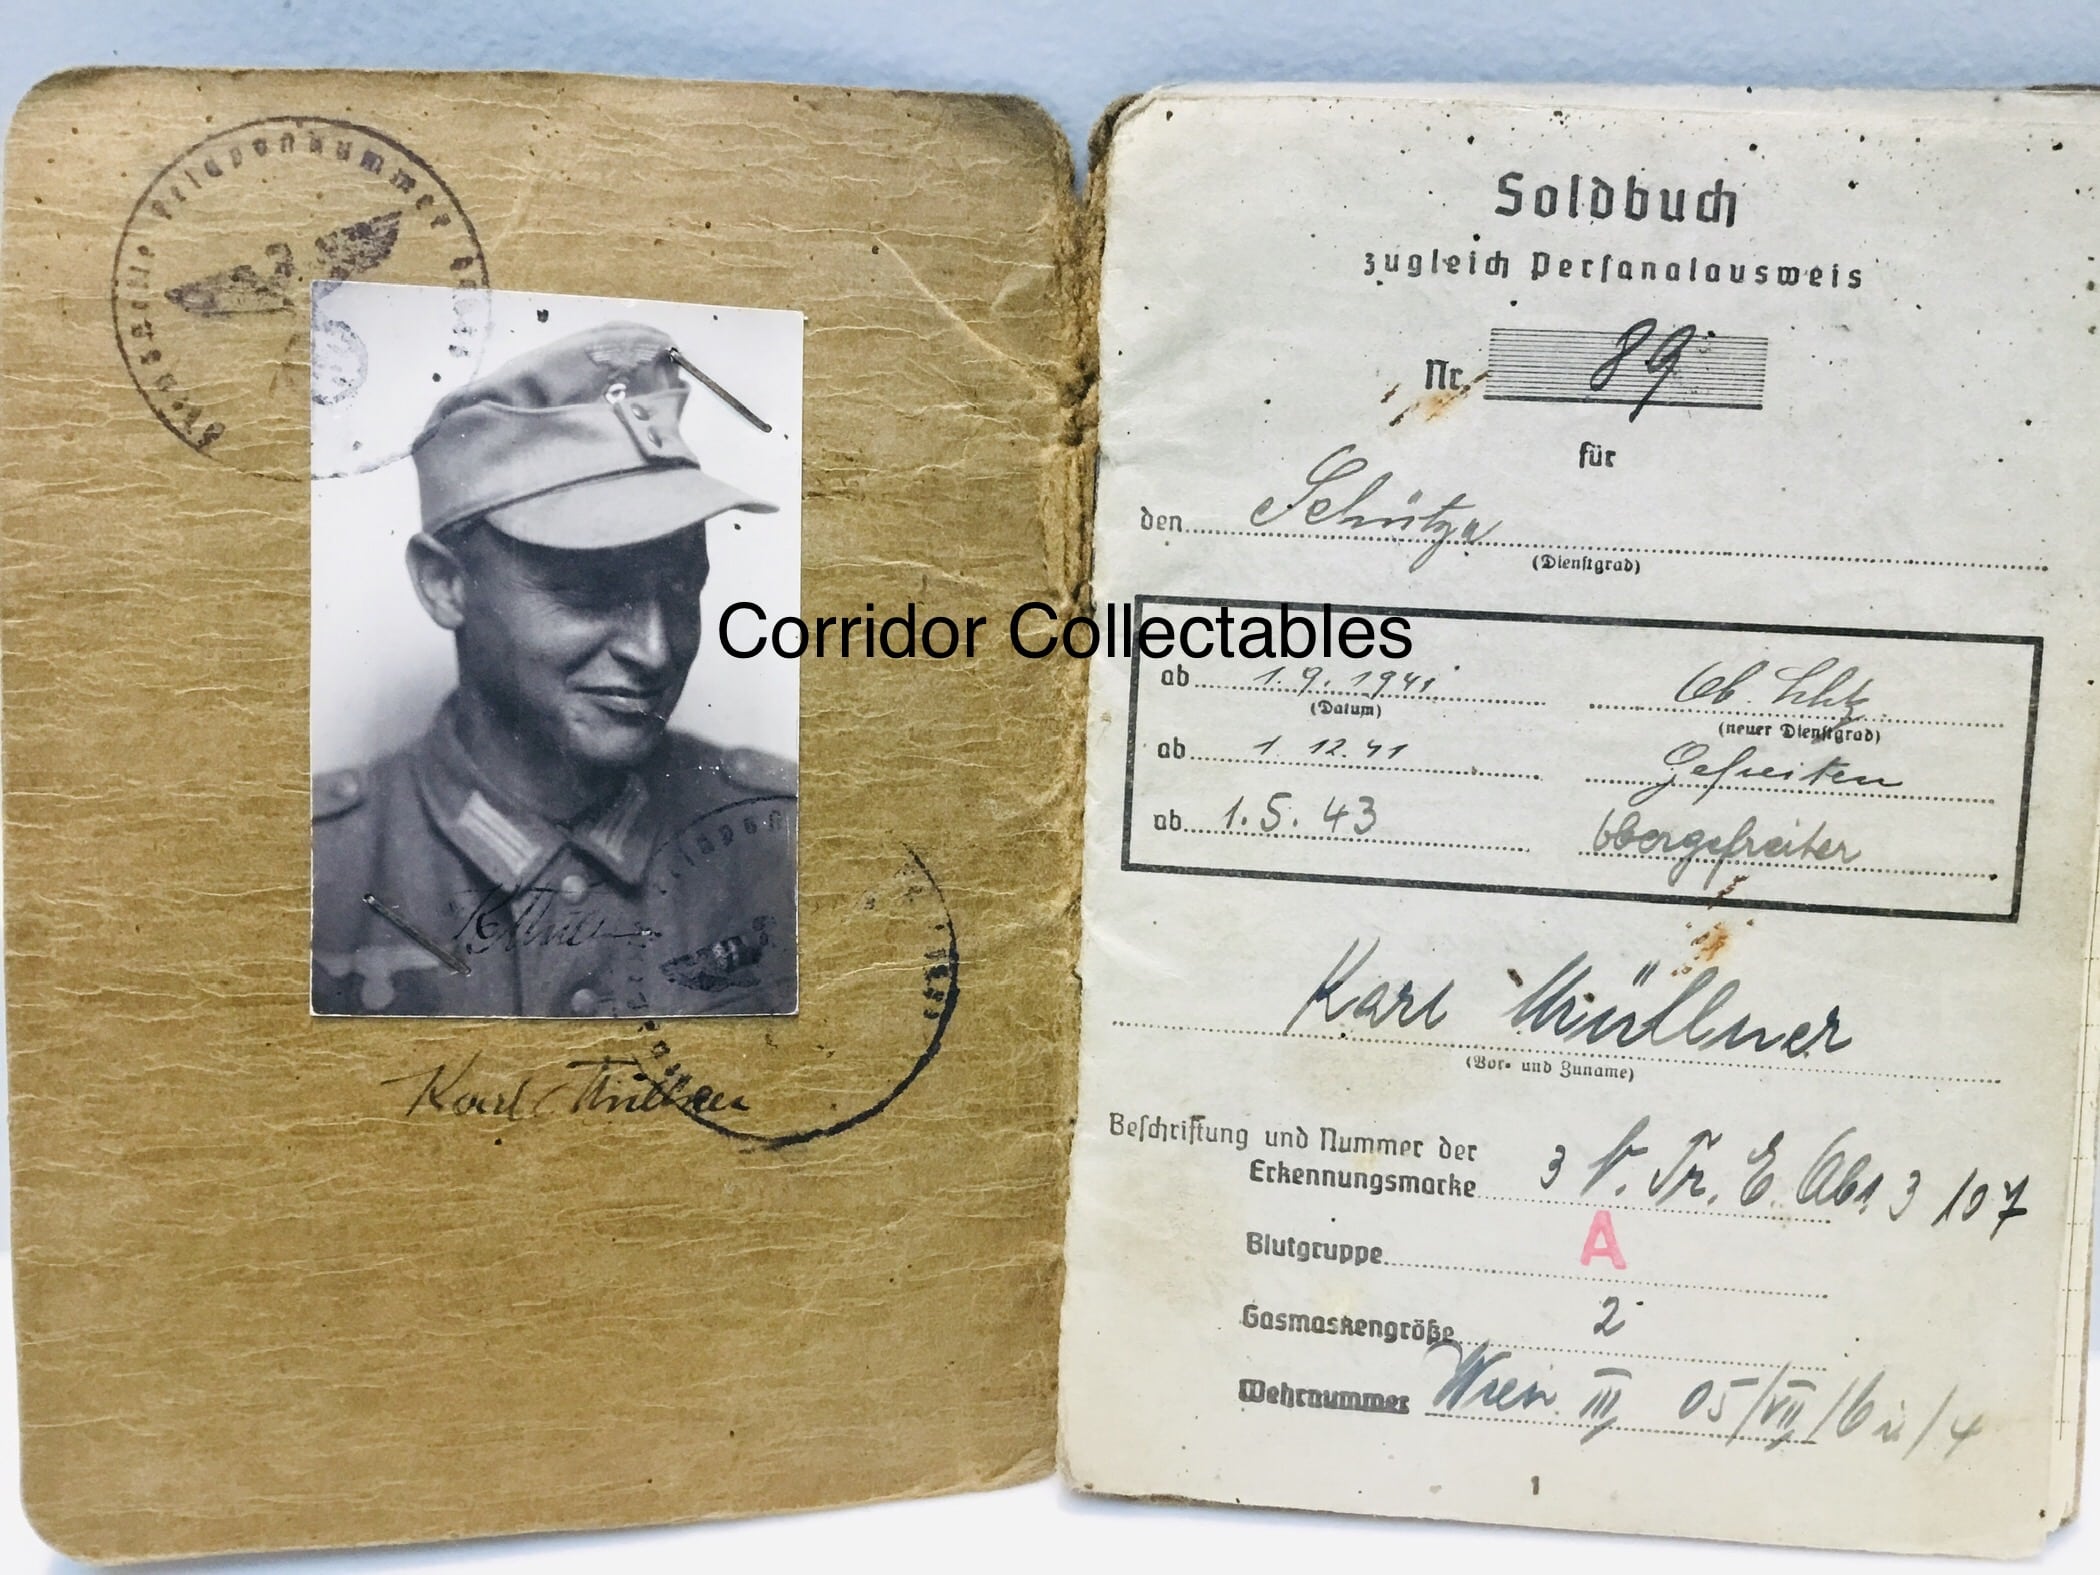 Dienststelle Feldpostnummer
K Müllner
Karl Müllner
Corridor Collectables
Soldbuch
zugleich Personalausweis
Nr. 89
für
den Schütze
(Dienstgrad)
ab 1.9.1941 Ob. Schtz.
(Datum) (neuer Dienstgrad)
ab 1.12.41 Gefreiten
ab 1.5.43 Obergefreiter
Karl Müllner
(Vor- und Zuname)
Beschriftung und Nummer der
Erkennungsmarke 3 V. Tr. E. Abt. 3 107
Blutgruppe A
Gasmaskengröße 2
Wehrnummer Wien III 05/VII/
1